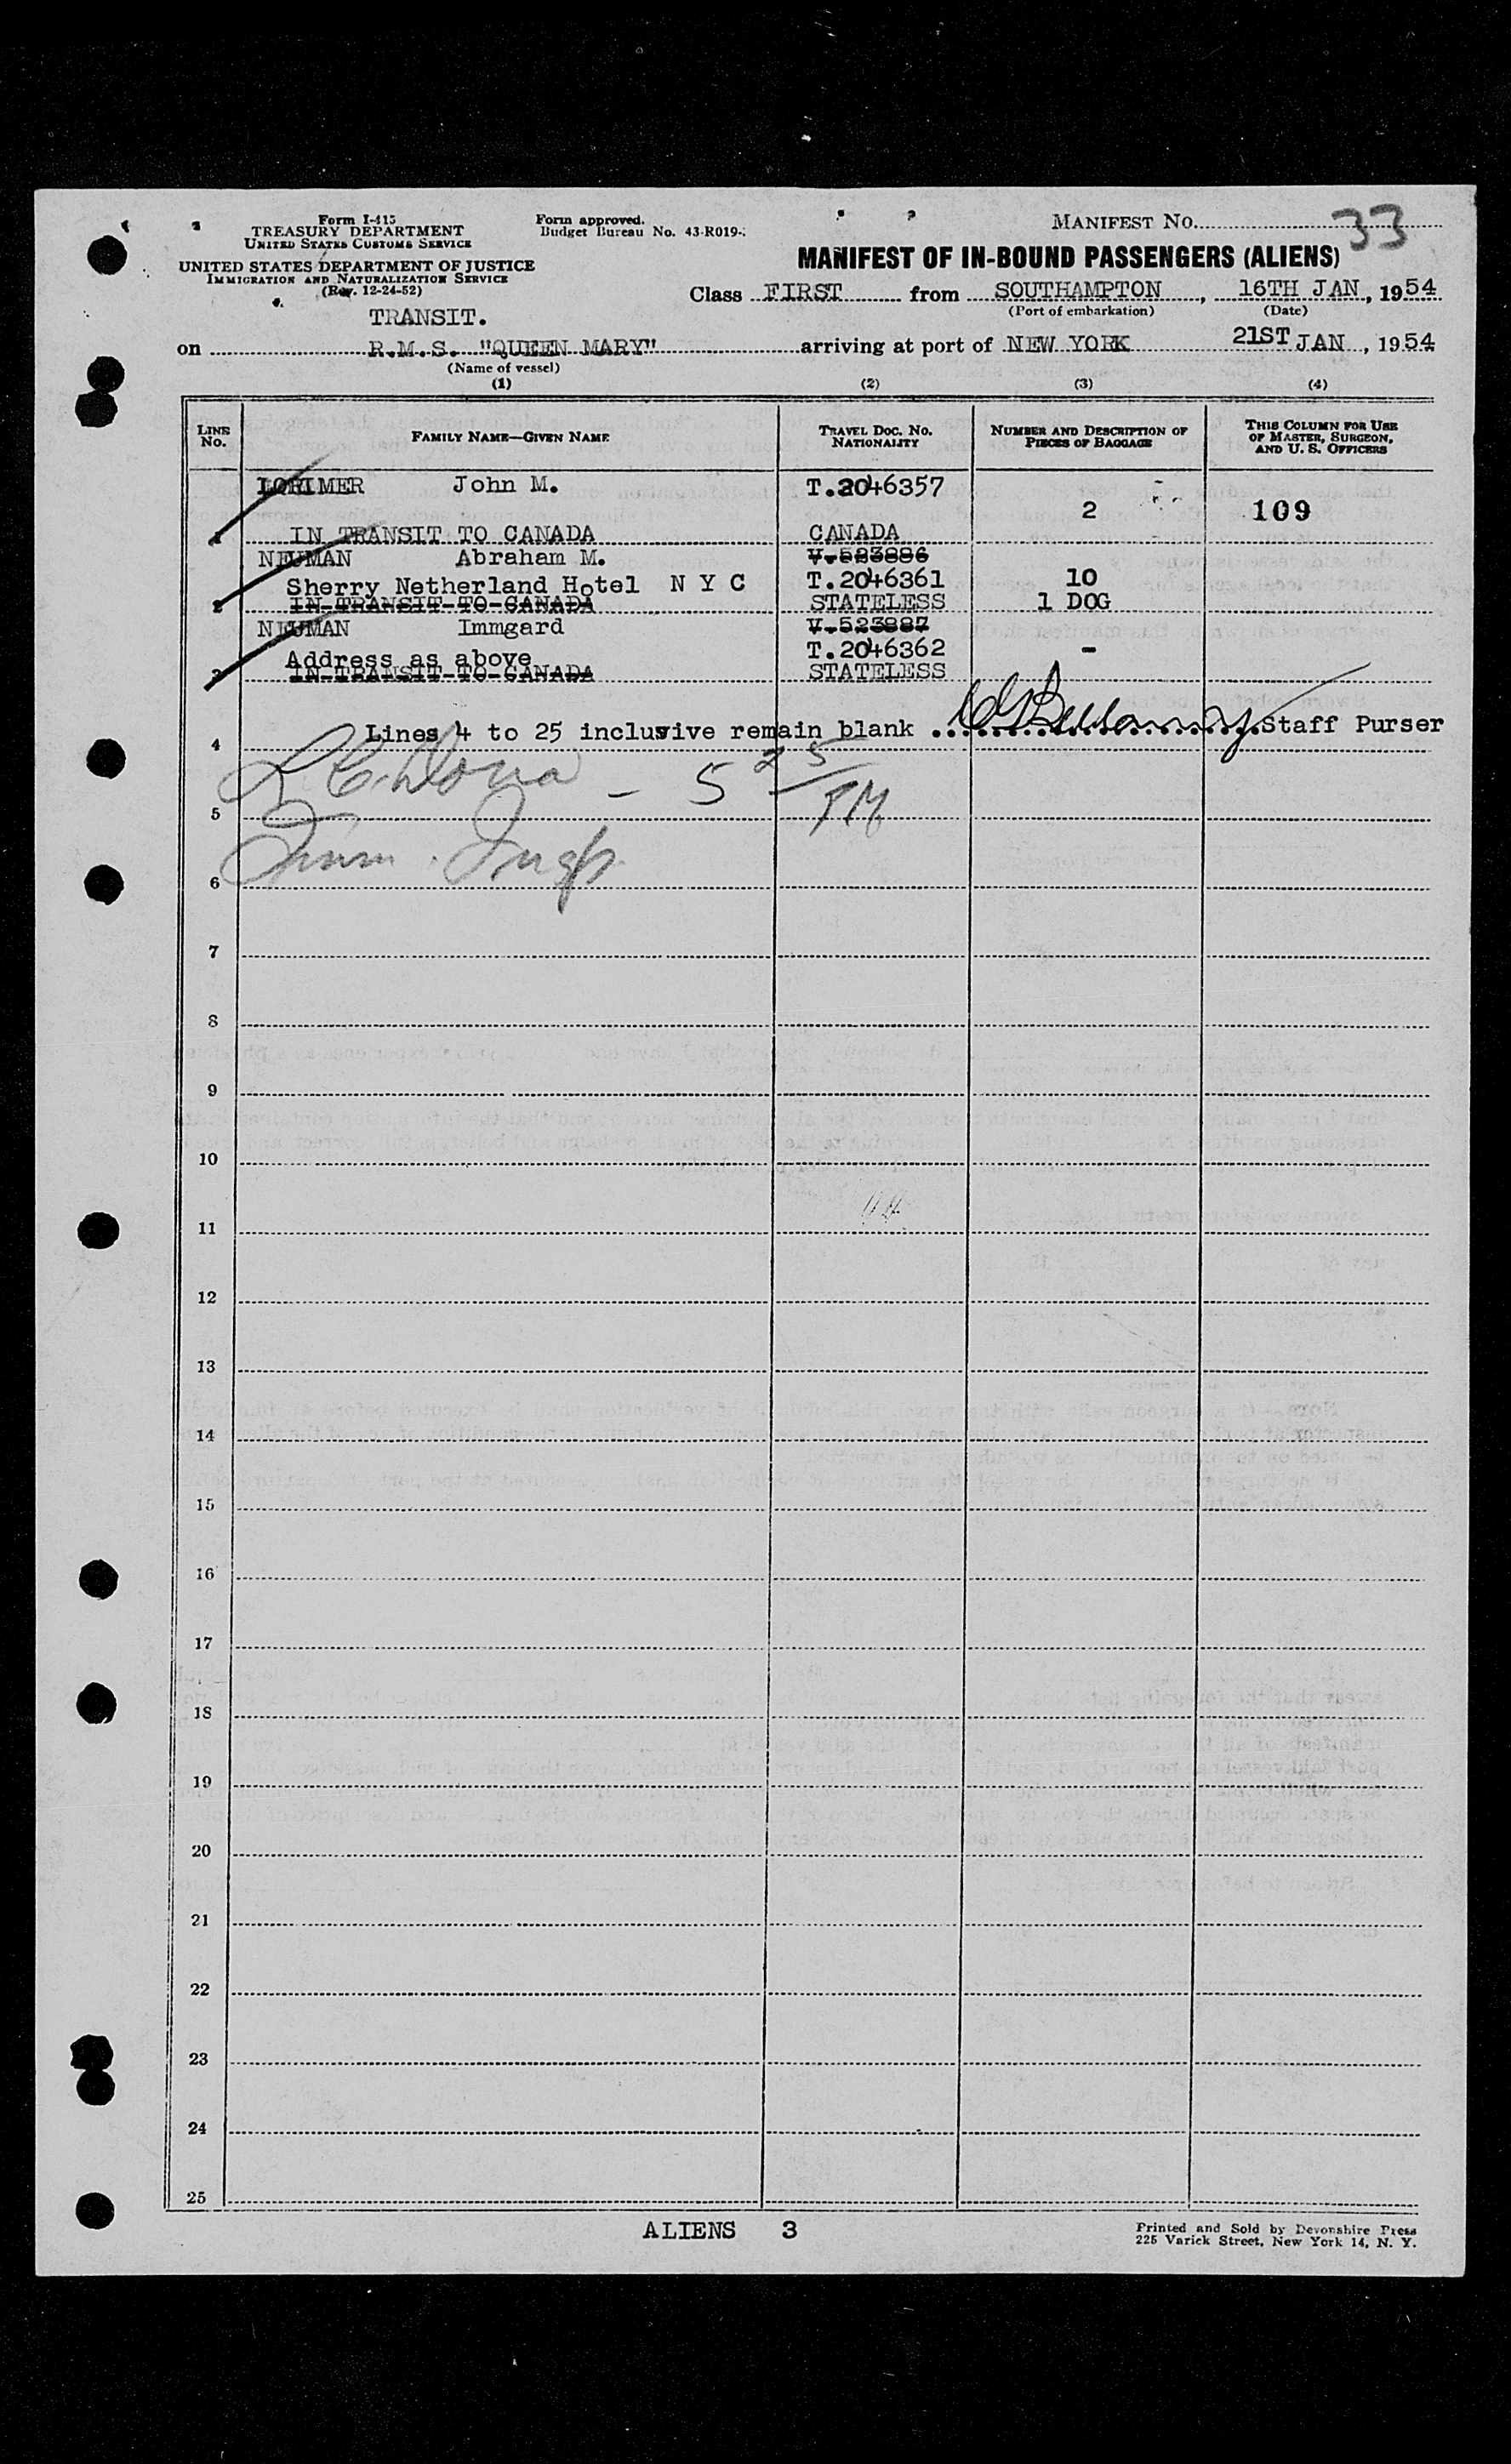 Form I-415
TREASURY DEPARTMENT
UNITED STATES CUSTOMS SERVICE
UNITED STATES DEPARTMENT OF JUSTICE
IMMIGRATION AND NATURALIZATION SERVICE
(Rev. 12-24-52)
Form approved.
Budget Bureau No. 43-R019-
MANIFEST NO. 33
MANIFEST OF IN-BOUND PASSENGERS (ALIENS)
Class FIRST from SOUTHAMPTON, 16TH JAN, 1954
(Port of embarkation) (Date)
TRANSIT.
on R.M.S. "QUEEN MARY" arriving at port of NEW YORK 21ST JAN, 1954
(Name of vessel)
(1) (2) (3) (4)
LINE No. FAMILY NAME—GIVEN NAME TRAVEL DOC. NO. NATIONALITY NUMBER AND DESCRIPTION OF PIECES OF BAGGAGE THIS COLUMN FOR USE OF MASTER, SURGEON, AND U. S. OFFICERS
LORIMER John M. T.2046357
2 109
1 IN TRANSIT TO CANADA CANADA
NEUMAN Abraham M. V.523886
Sherry Netherland Hotel N Y C T.2046361 10
2 IN TRANSIT TO CANADA STATELESS 1 DOG
NEUMAN Immgard V.523887
Address as above T.2046362 -
3 IN TRANSIT TO CANADA STATELESS
4 Lines 4 to 25 inclusive remain blank Staff Purser
- 5 25/PM
5
6
7
8
9
10
11
12
13
14
15
16
17
18
19
20
21
22
23
24
25
ALIENS 3
Printed and Sold by Devonshire Press
225 Varick Street, New York 14, N. Y.